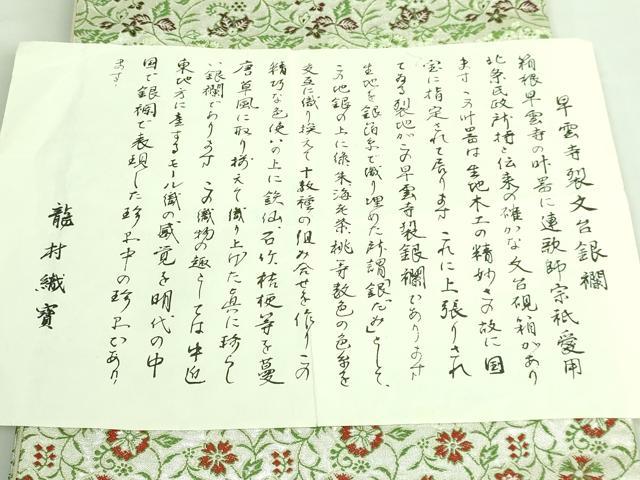 早雲寺裂文台銀欄
箱根早雲寺の什器に連歌師宗祇愛用
北条氏政所持と伝来の確かな文台硯箱があり
ます この什器は生地木工の精妙さの故に国
宝に指定されて居ります これに上張りされ
てゐる裂地がこの早雲寺裂銀欄であります
生地を銀箔糸で織り埋めた所謂銀だみとして、
この地銀の上に緑朱海老茶桃等数色の色糸を
交互に織り換えて十数種の組み合せを作りこの
精巧な色使いの上に鉄仙、石竹、桔梗等を蔓
唐草風に取り揃えて織り上げた真に珍らし
い銀欄であります この織物の趣としては中近
東地方に産するモール織の感覚を明代の中
国で銀欄で表現した珍品中の珍品であり
ます.
龍村織寶